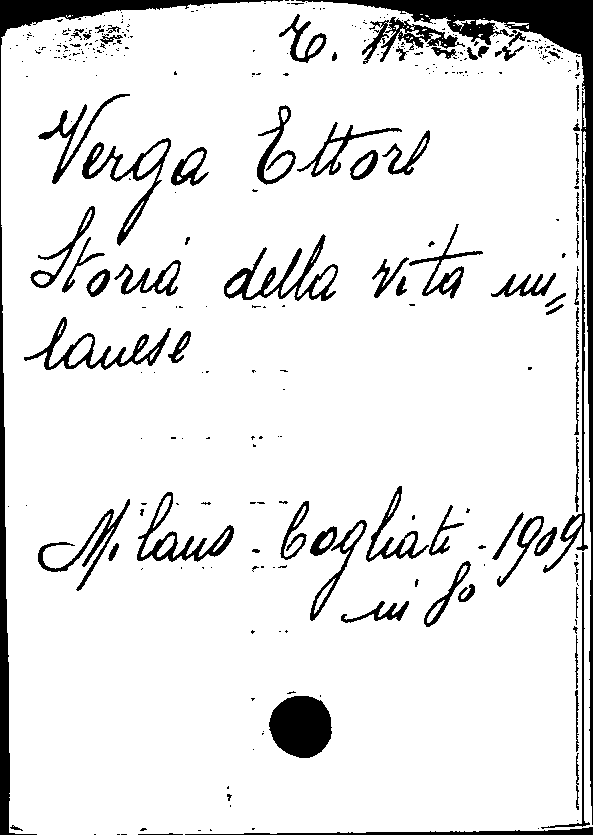 Verga Ettore
Storia della vita mi=
lanese
Milano - Cogliati - 1909 -
in 8º